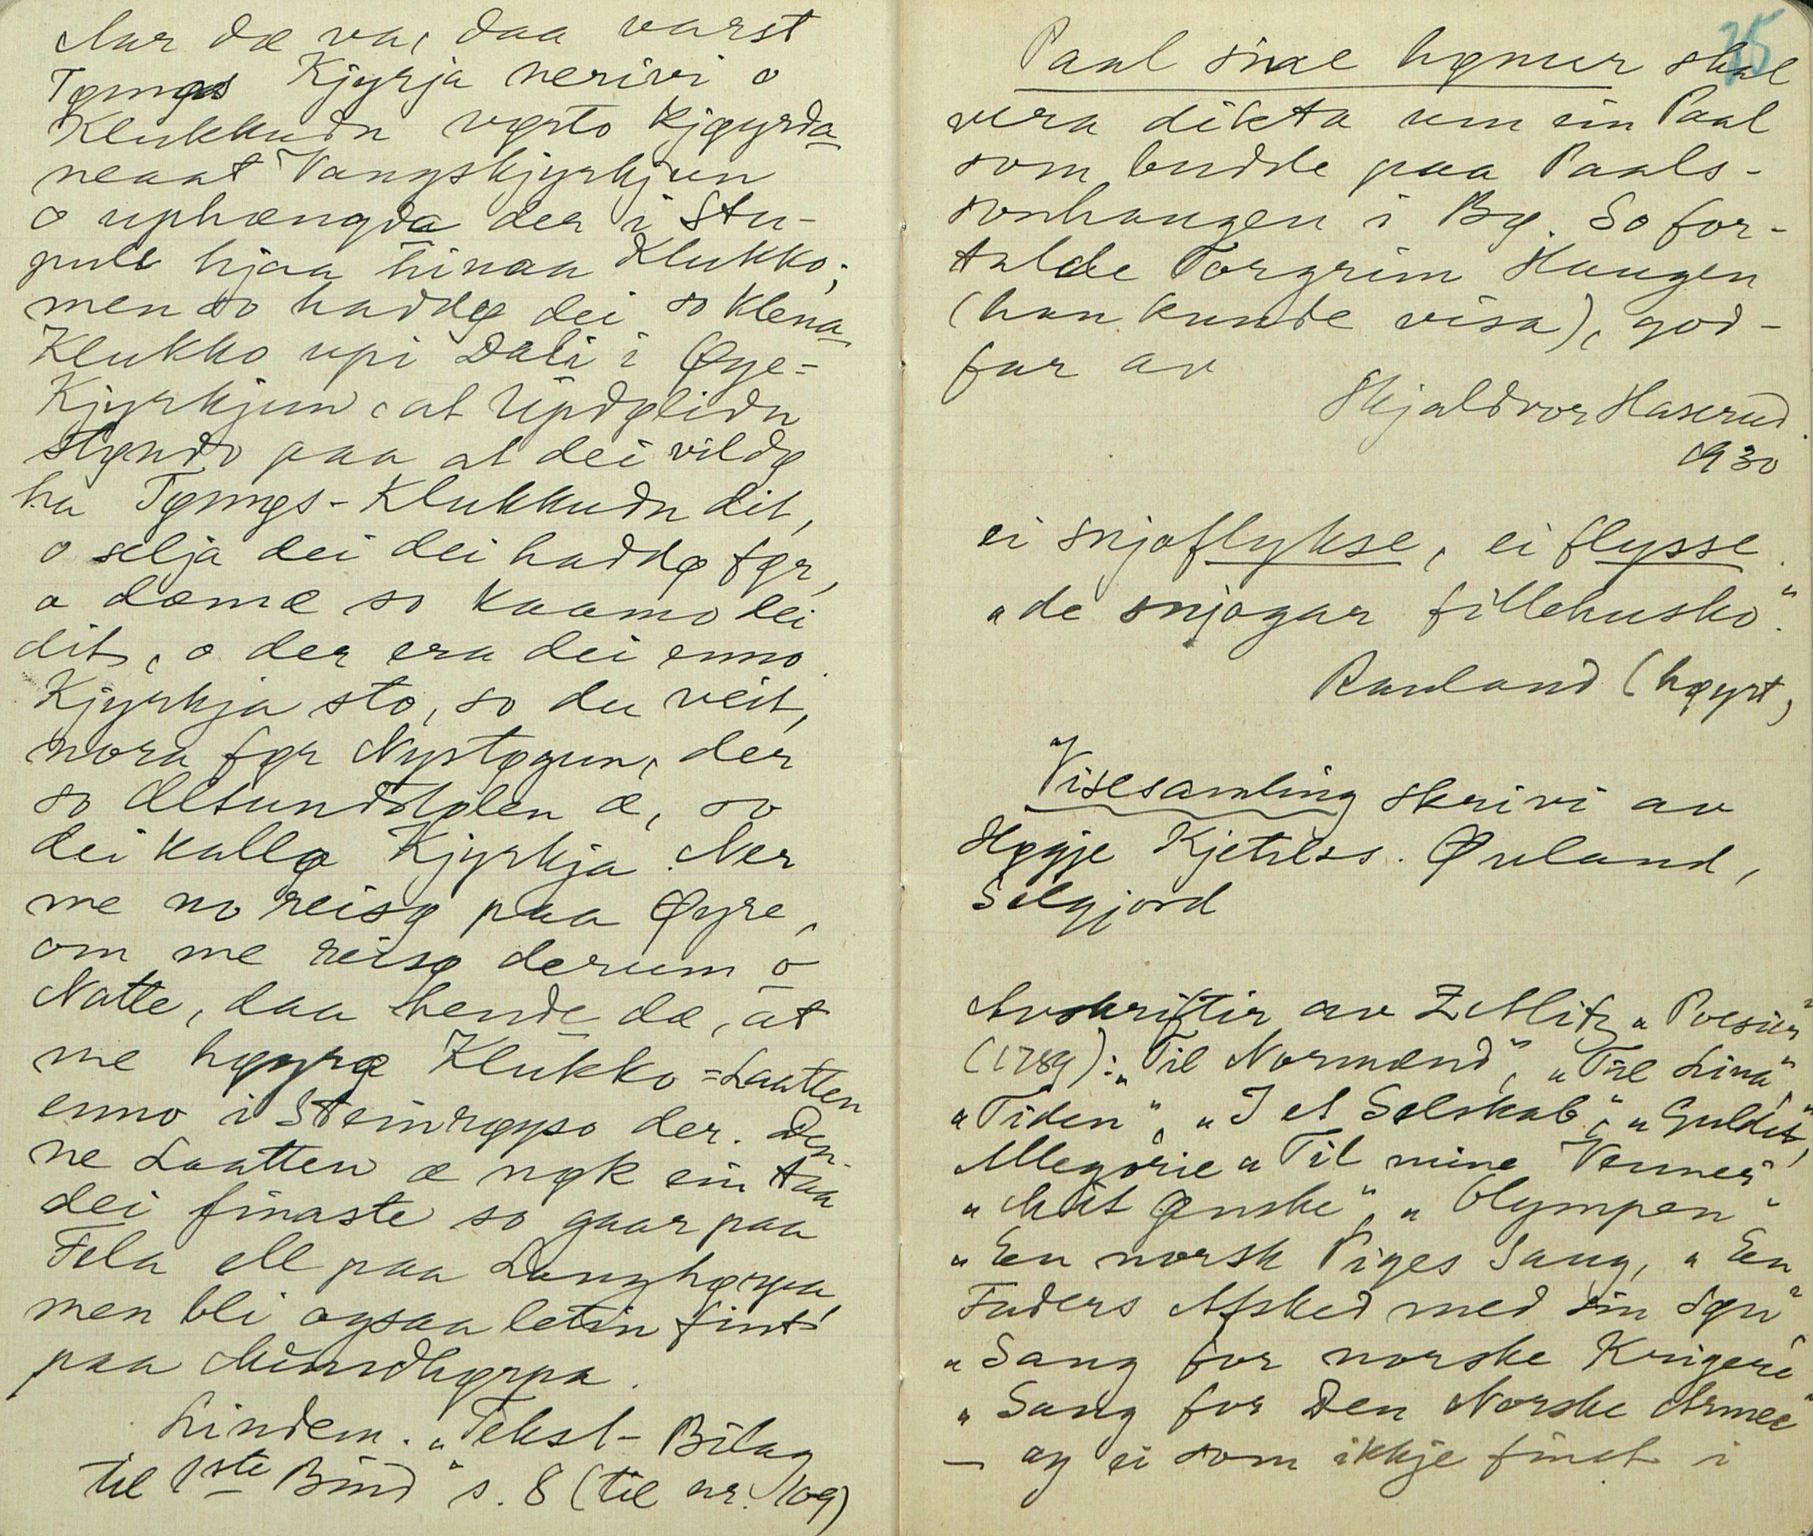 Aar dæ va, daa varst
Tømgs Kjyrja nerivi o
Klukkudn vørto kjøyrda
neaat Vangskjyrkjun
o uphængda der i Stu-
pule hjaa hinaa Klukko;
men so haddø dei so klena
Klukko upi Dali i Øye-
Kjyrkjun, at Updølidn
støndo paa at dei vildø
ha Tømgs-Klukkudn dit,
o selja dei dei haddø før,
o dæmæ so kaamo dei
dit, o der era dei enno
Kjyrkja sto, so du veit,
nora før Nystøgun, der
so Altundstølen æ, so
dei kallø Kjyrkja. Ner
me no reisø paa Øyre,
om me reisø derum o
Natte, daa hende dæ, at
me høyrø Klukko-Laatten
enno i Steinrøyso der. Den-
ne Laatten æ nøk ein taa
dei finaste so gaar paa
Fela ell paa Langhørpa,
men bli ogsaa letin fint
paa Munnhørpa.
Lindem. „Tekst-Bilag
til 1ste Bind" s. 8 (til nr. 109)
25
Paal sine hønur skal
vera dikta um ein Paal
som budde paa Paals-
sonhaugen i Bø. So for-
talde Torgrim Haugen
(han kunde visa), god-
far av
Skjaldvor Haserud.
1930
ei snjoflykse, ei flysse.
„de snjogar fillehusko".
Rauland (høyrt)
Visesamling skrivi av
Høgje Kjetilss. Øvland,
Seljord
Avskriftir av Zetlitz „Poesier"
(1789): „Til Normænd", „Til Lina",
„Tiden", „I et Selskab", „Guldet",
Allegorie „Til mine Venner"
„Mit Ønske", „Olympen"
„En norsk Piges Sang, „En
Faders Afsked med sin Søn"
„Sang for norske Krigere"
„Sang for Den Norske Armee"
— og ei som ikkje finst i